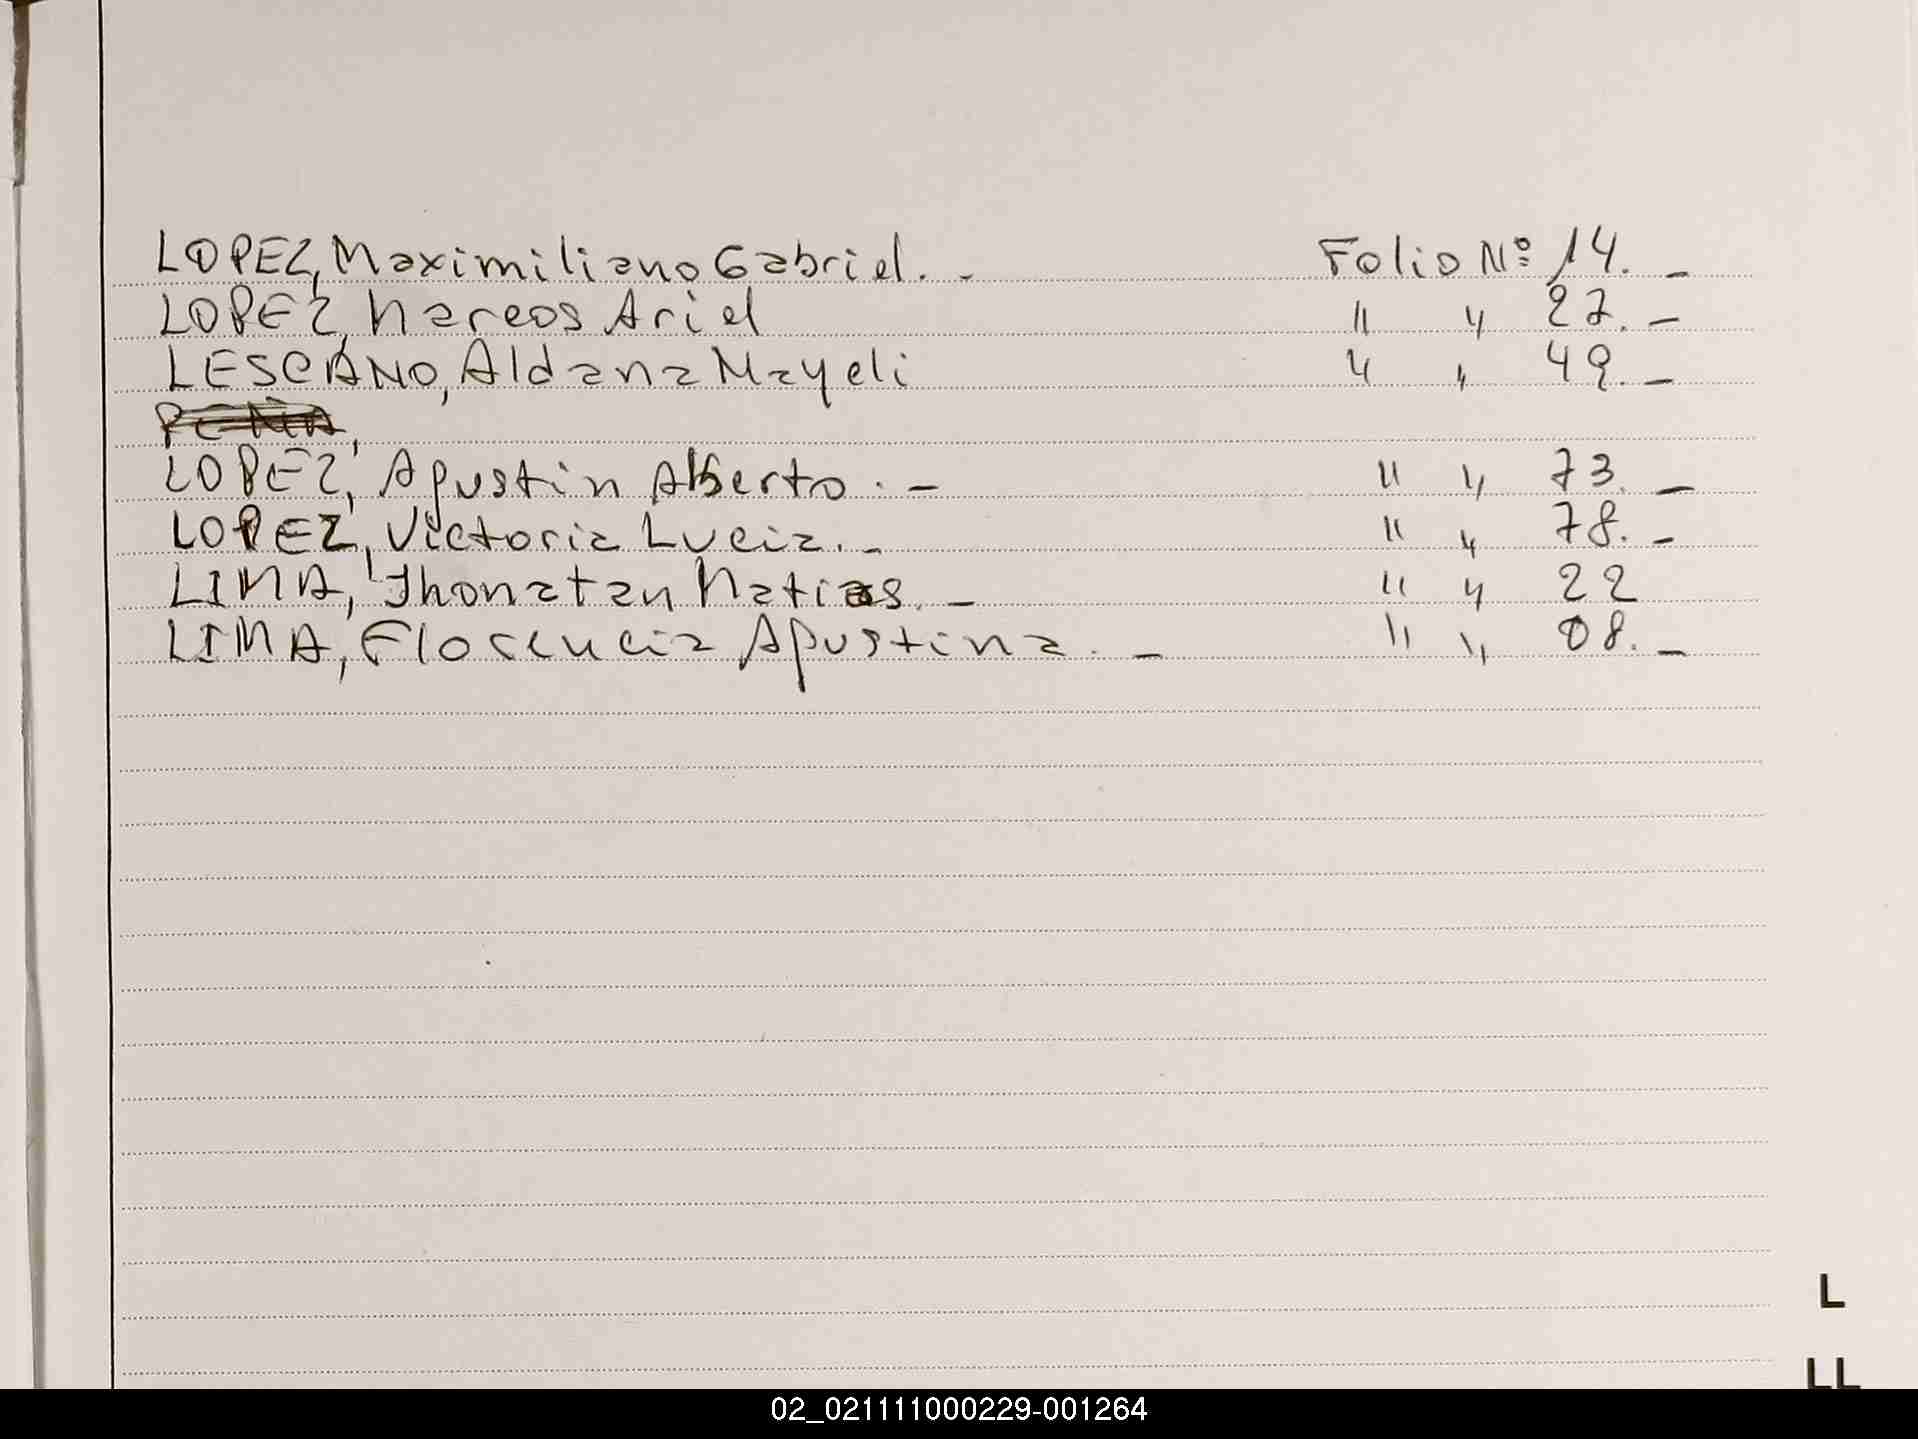 LOPEZ, Maximiliano Gabriel. - Folio Nº 14. -
LOPEZ, Marcos Ariel " " 27. -
LESCANO, Aldana Mayeli " " 49. -
PEÑA,
LOPEZ, Agustin Alberto. - " " 73. -
LOPEZ, Victoria Lucia. - " " 78. -
LIMA, Jhonatan Matias. - " " 22
LIMA, Florencia Agustina. - " " 08. -
L
LL
02_021111000229-001264